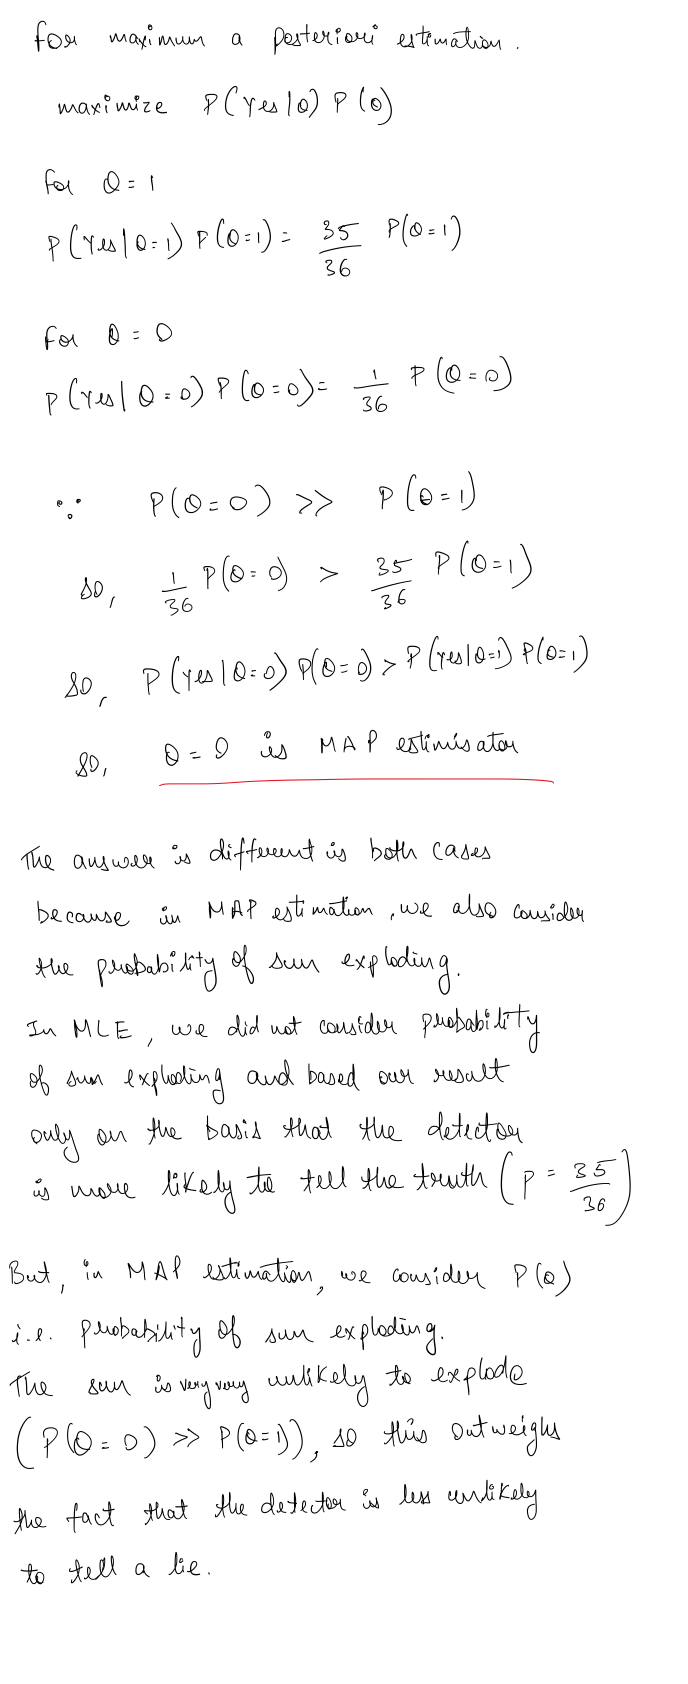 for maximum a posteriori estimation.
maximize P(Yes|θ) P(θ)
for θ = 1
P(Yes|θ=1) P(θ=1) = 35/36 P(θ=1)
for θ = 0
P(Yes|θ=0) P(θ=0) = 1/36 P(θ=0)
∵ P(θ=0) >> P(θ=1)
so, 1/36 P(θ=0) > 35/36 P(θ=1)
so, P(Yes|θ=0) P(θ=0) > P(Yes|θ=1) P(θ=1)
so, θ = 0 is MAP estimisator
The answer is different is both cases
because in MAP estimation, we also consider
the probability of sun exploding.
In MLE, we did not consider probability
of sun exploding and based our result
only on the basis that the detector
is more likely to tell the truth (P = 35/36)
But, in MAP estimation, we consider P(θ)
i.e. probability of sun exploding.
The sun is very very unlikely to explode
(P(θ=0) >> P(θ=1)), so this outweighs
the fact that the detector is less unlikely
to tell a lie.